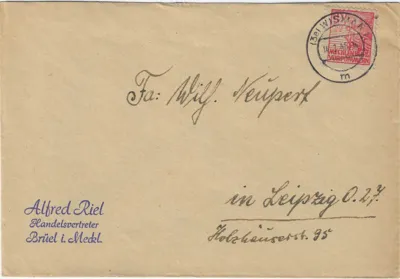 (3a) WISMAR
m
Fa: Wilh. Neupert
in Leipzig O. 27.
Holzhäuserstr. 95
Alfred Riel
Handelsvertreter
Brüel i. Meckl.